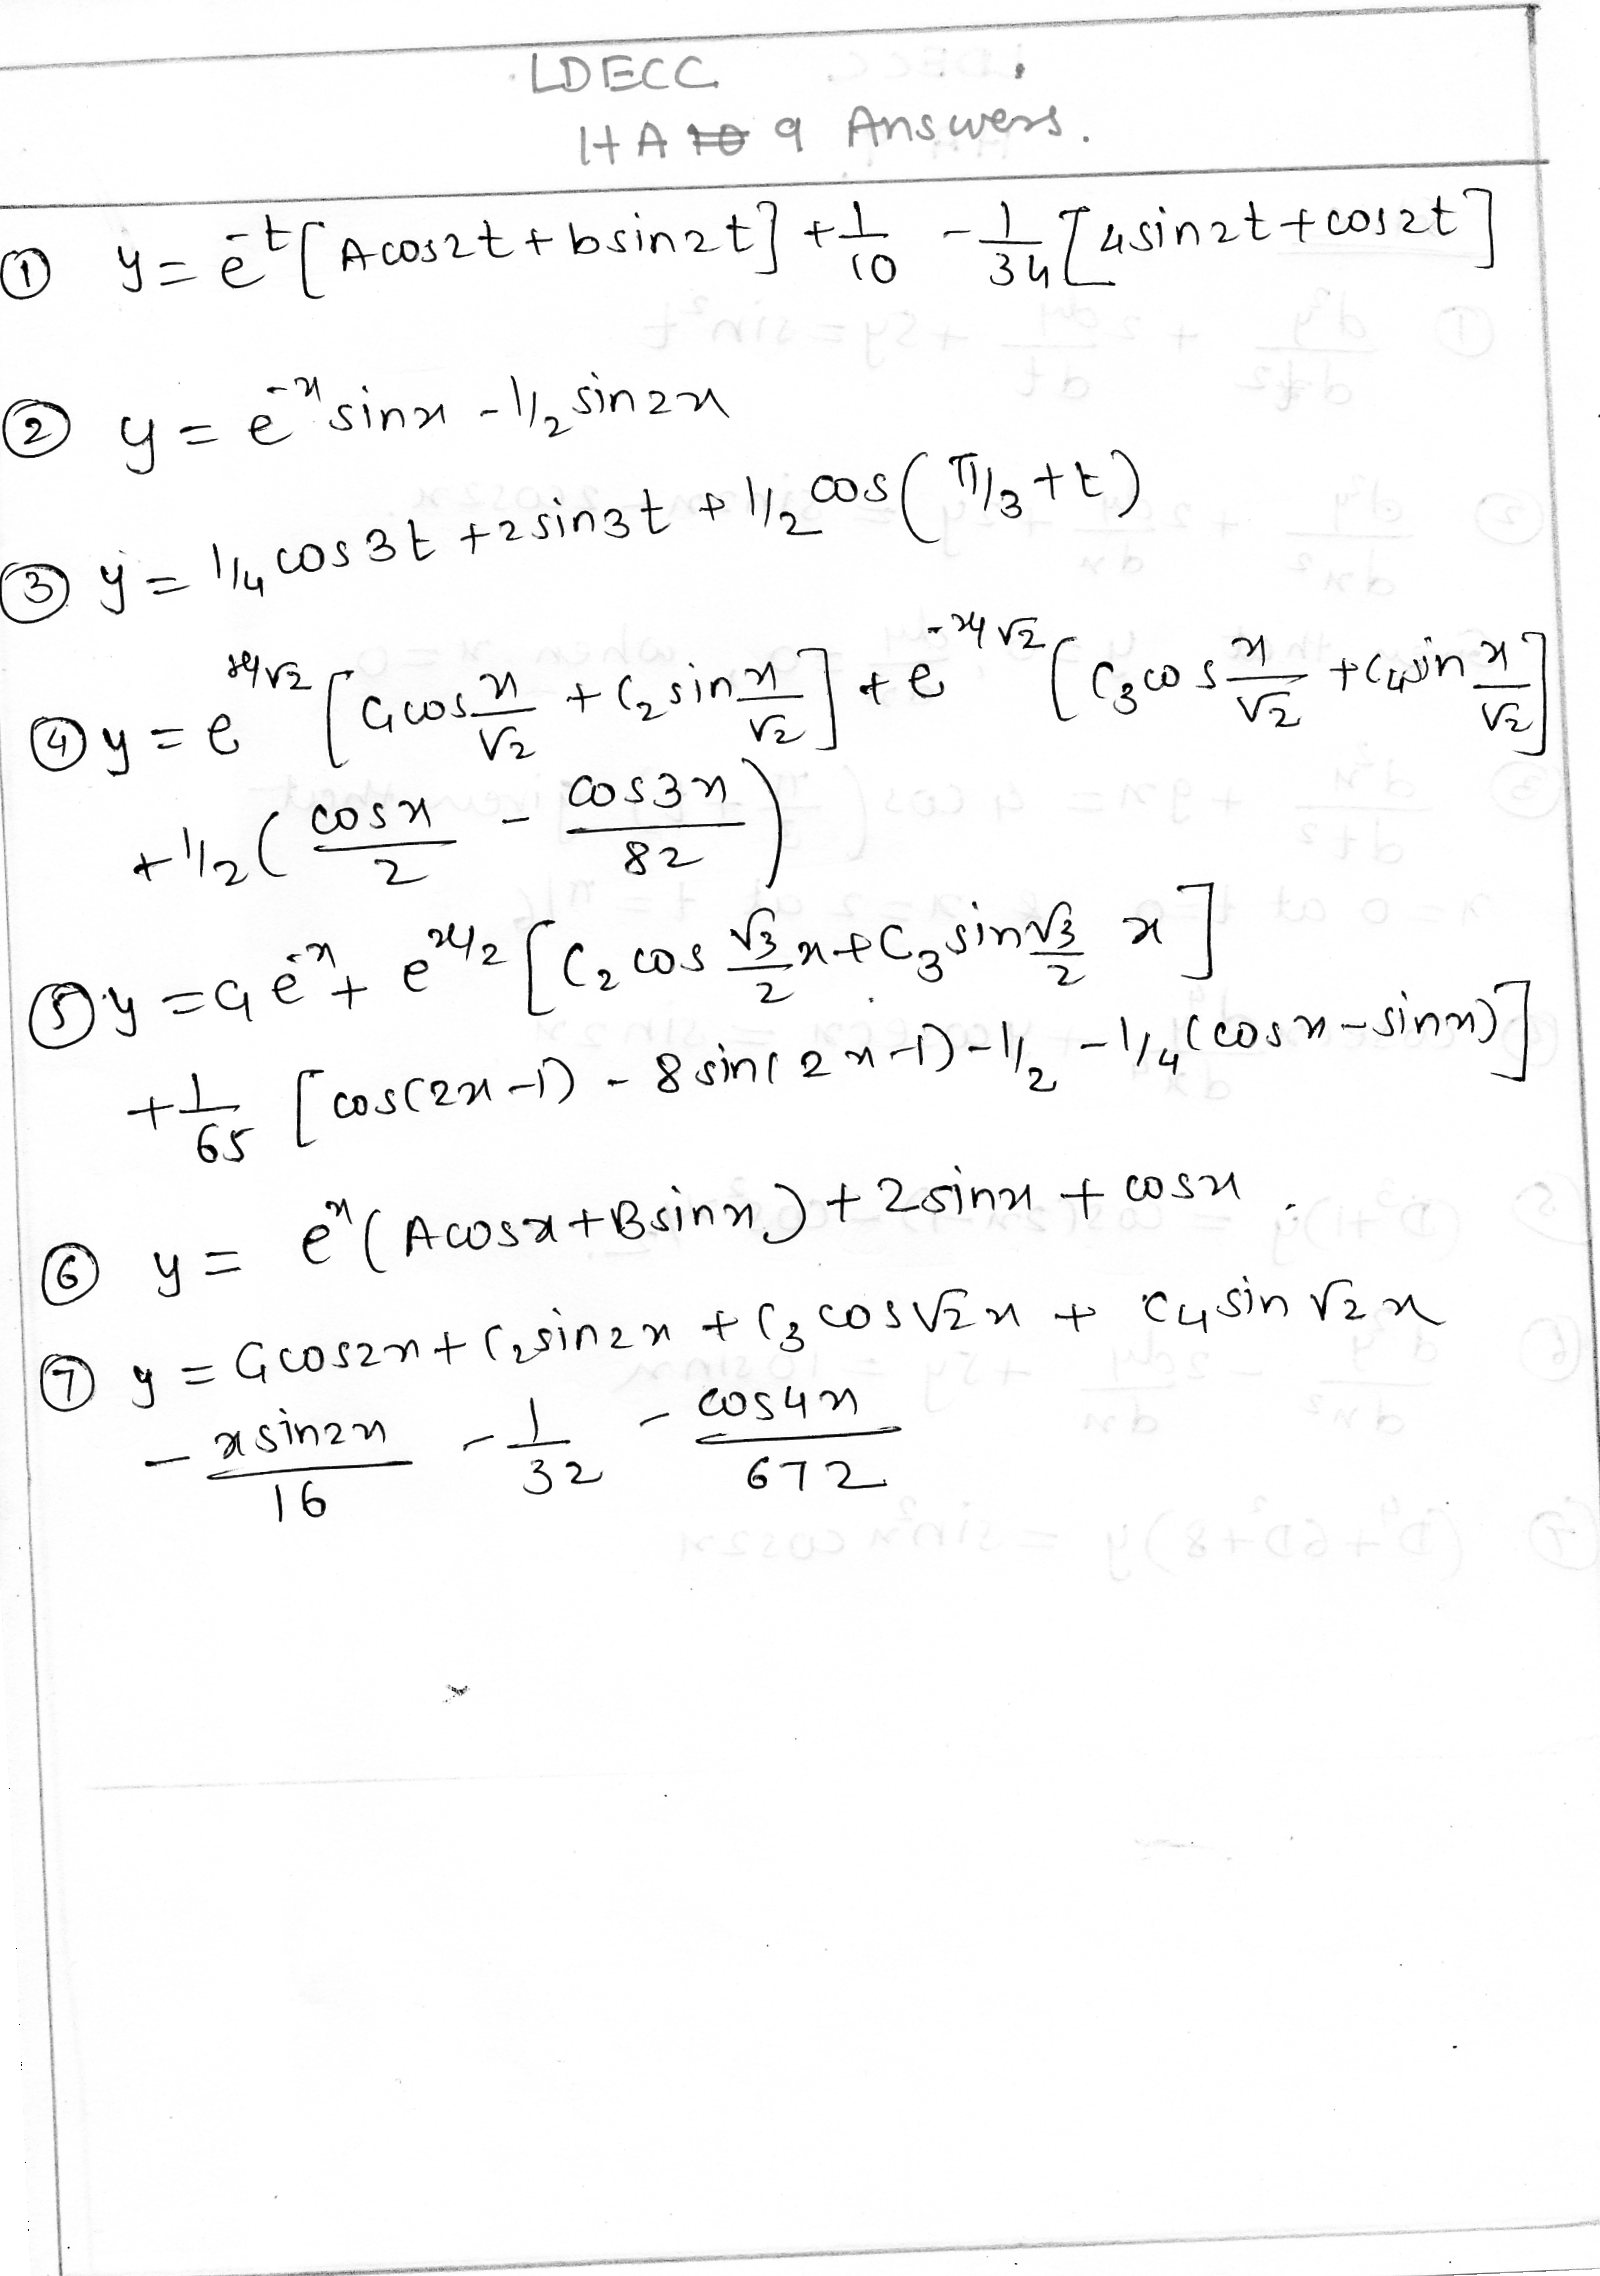 LDECC
HA 10 9 Answers.
① y = e^-t [A cos2t + b sin2t] + 1/10 - 1/34 [4sin2t + cos2t]
② y = e^-x sinx - 1/2 sin2x
③ y = 1/4 cos3t + 2sin3t + 1/2 cos(π/3 + t)
④ y = e^x/√2 [C1 cos x/√2 + C2 sin x/√2] + e^-x/√2 [C3 cos x/√2 + C4 sin x/√2]
+ 1/2 (cosx/2 - cos3x/82)
⑤ y = C1 e^-x + e^x/2 [C2 cos √3/2 x + C3 sin √3/2 x]
+ 1/65 [cos(2x-1) - 8sin(2x-1) - 1/2 - 1/4 (cosx - sinx)]
⑥ y = e^x (A cosx + B sinx) + 2sinx + cosx.
⑦ y = C1 cos2x + C2 sin2x + C3 cos√2x + C4 sin√2x
- x sin2x/16 - 1/32 - cos4x/672